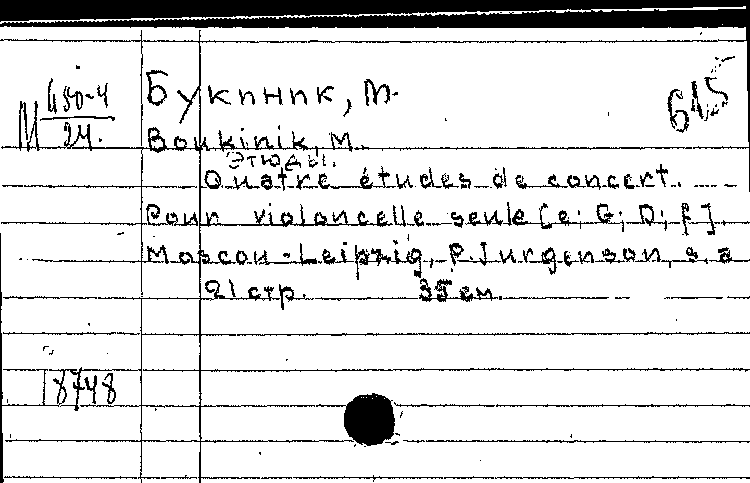 Букиник, М.
М 450-4
24.
645
Boukinik, M.
Этюды.
Quatre études de concert.
Pour violoncelle seule [e; G; D; f].
Moscou-Leipzig, P. Jurgenson, s. a
21 стр. 35 см.
18748